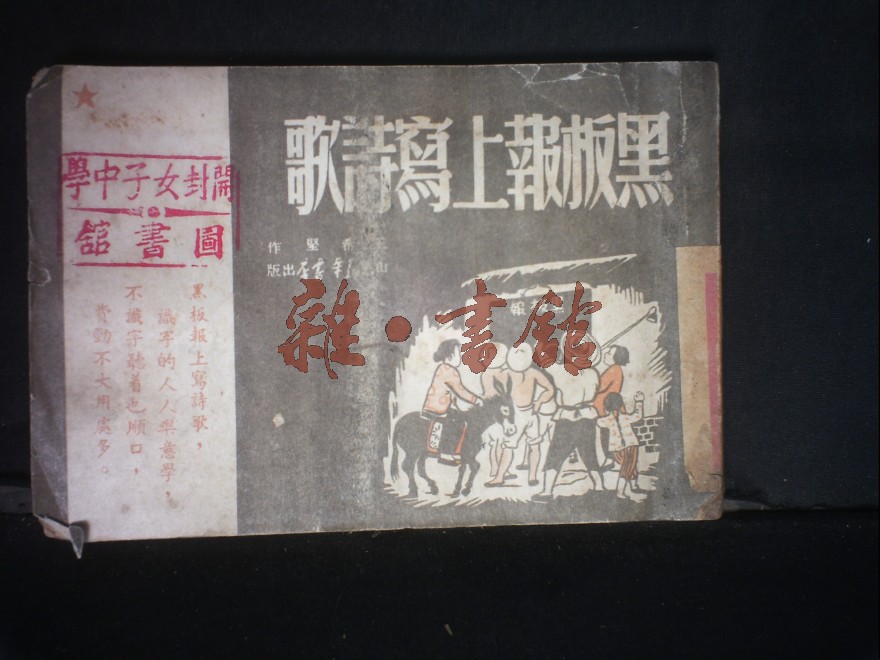 黑板報上寫詩歌
希堅作
山書店出版
報
開封女子中學
圖書舘
黑板報上寫詩歌，
識字的人人樂意學，
不識字聽着也順口，
費勁不大用處多。
雜·書舘